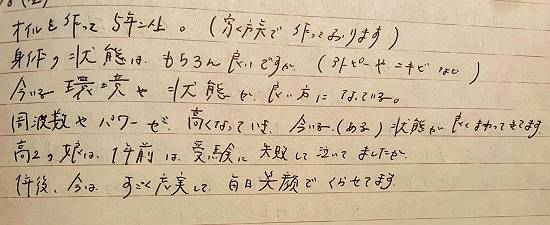 オイルを作って5年以上。(家族で作っております)
身体の状態は、もちろん良いですが(アトピーやニキビなど)
今いる環境や状態が良い方になっている。
周波数やパワーが、高くなっていき、今いる(ある)状態が良くまわってきてます
高2の娘は、1年前は、受験に失敗して泣いてましたが
1年後、今は、すごく充実して、毎日笑顔でくらせてます。